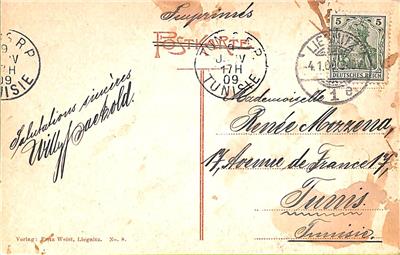 Imprimés
POSTKARTE
R.P.
J V
17H
09
TUNISIE
TUNIS R.P.
J V
17H
09
TUNISIE
LIEGNITZ
-4.1.
1 e
5 5
DEUTSCHES REICH
Salutations sincères
Willy
Mademoiselle
Renée Mozzena,
17, Avenue de France 17,
Tunis.
Tunisie.
Verlag: Fritz Weist, Liegnitz. No. 8.